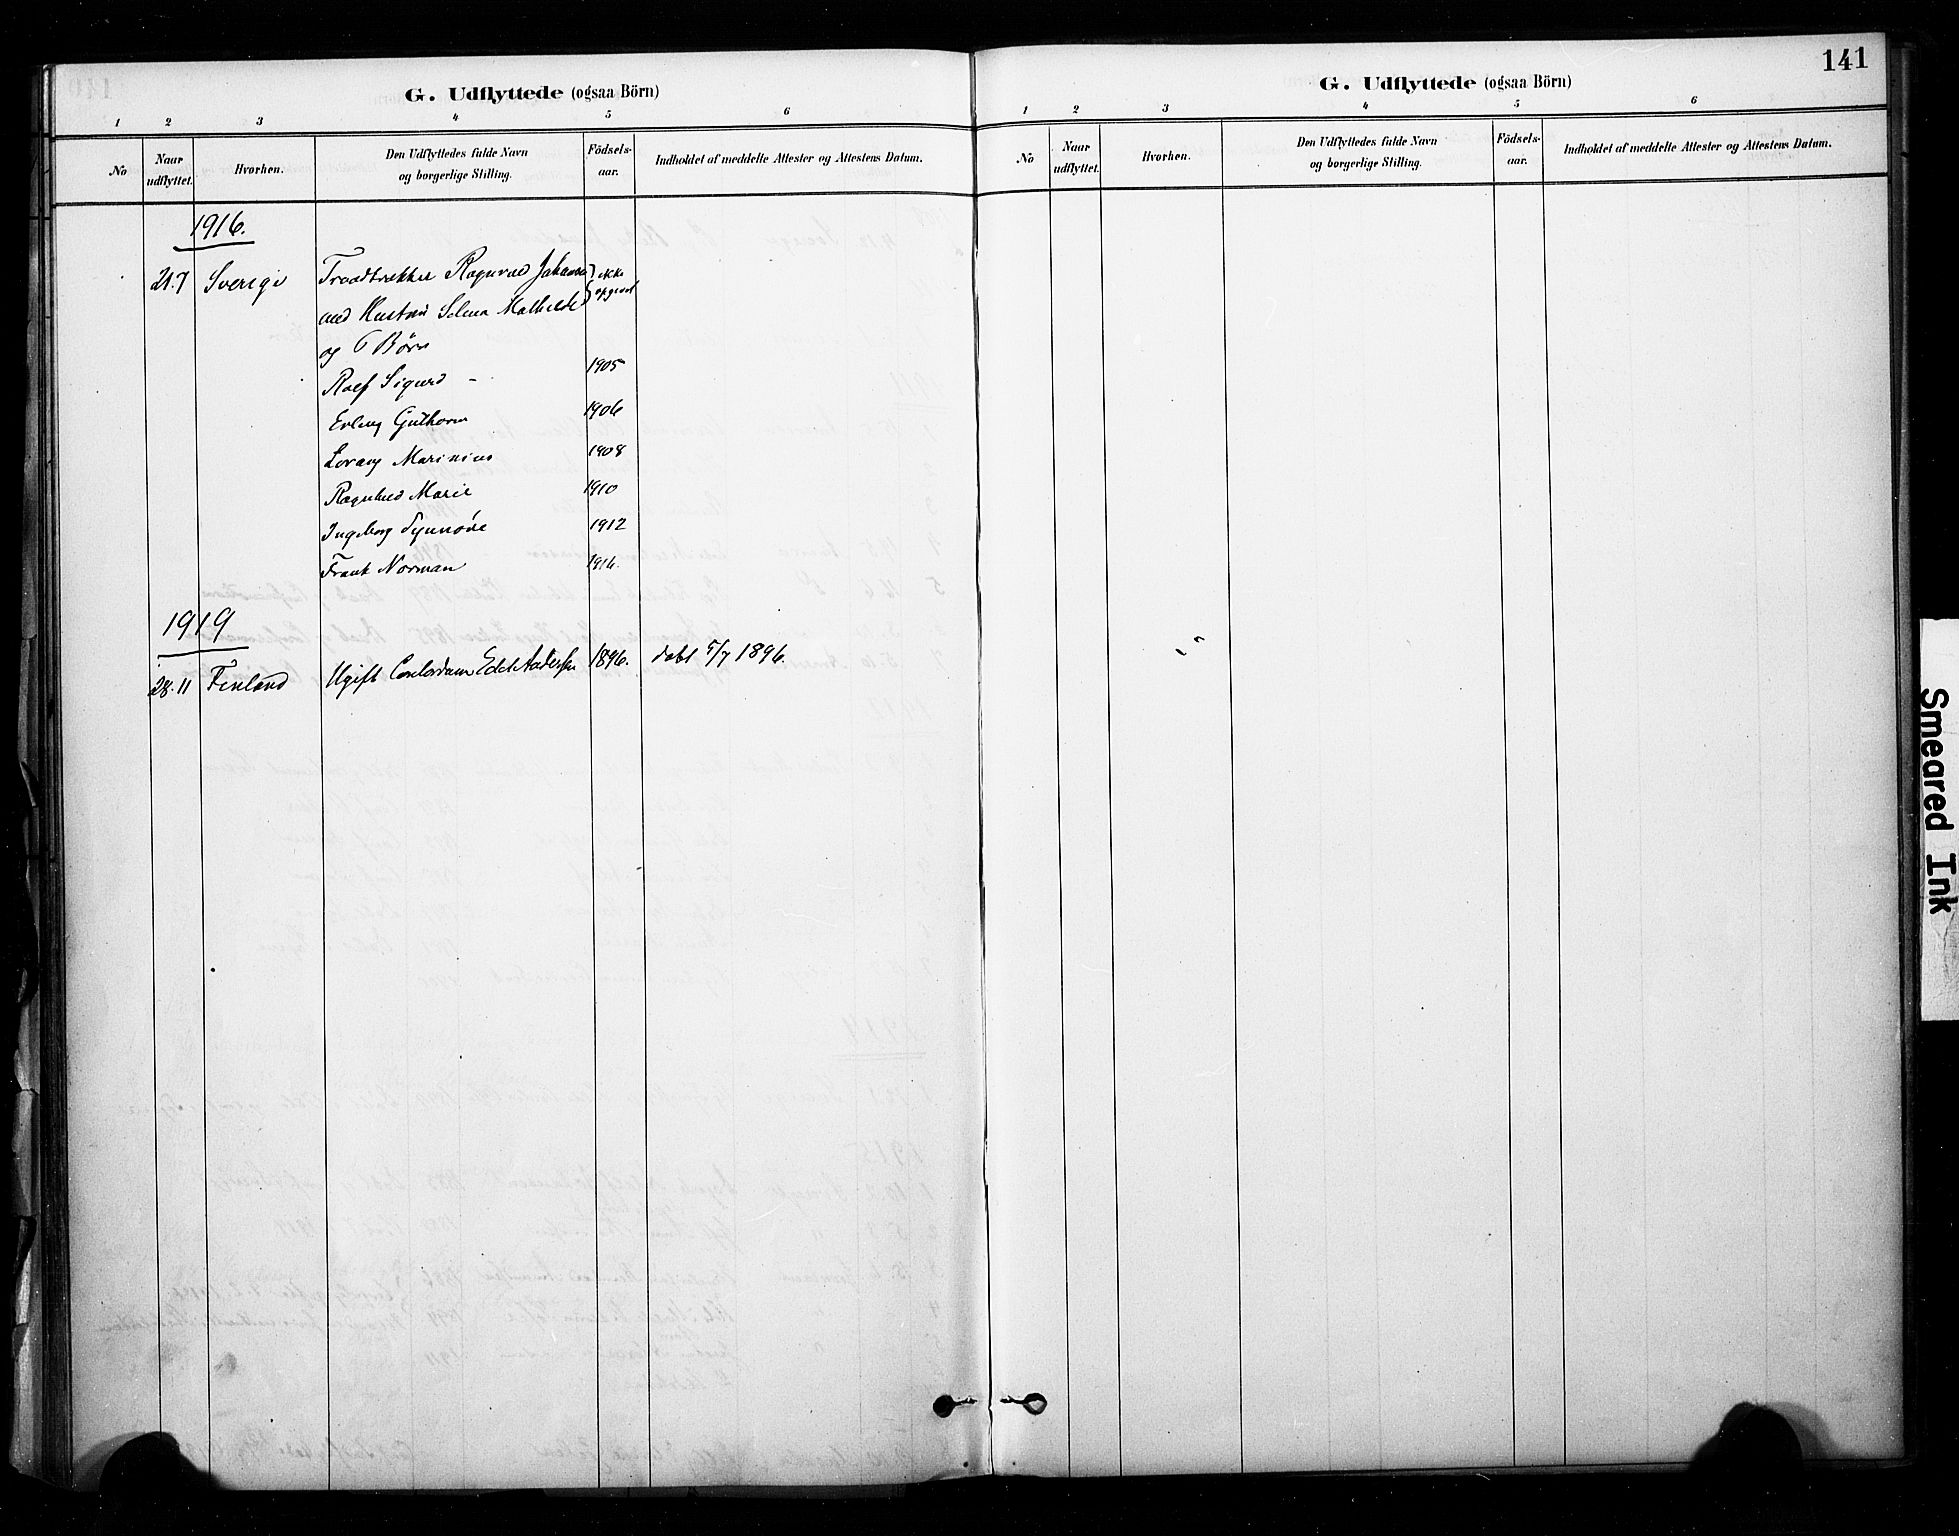 141
G. Udflyttede (ogsaa Börn)
1 2 3 4 5 6
No
Naar udflyttet.
Hvorhen.
Den Udflyttedes fulde Navn og borgerlige Stilling.
Födsels-aar.
Indholdet af meddelte Attester og Attestens Datum.
1916.
21.7 Sverige Traadtrækker Ragnvad Johansen } ikke
med Hustru Selma Mathilde } opgivet
og 6 Börn
Rolf Sigurd - 1905
Erling Guthorm 1906
Lorang Marinius 1908
Ragnhild Marie 1910
Ingeborg Synnöve 1912
Frank Norman 1916.
1919
28.11 Finland Ugift Andersen 1896. døbt 5/7 1896.
G. Udflyttede (ogsaa Börn)
1 2 3 4 5 6
No
Naar udflyttet.
Hvorhen.
Den Udflyttedes fulde Navn og borgerlige Stilling.
Födsels-aar.
Indholdet af meddelte Attester og Attestens Datum.
Smeared Ink